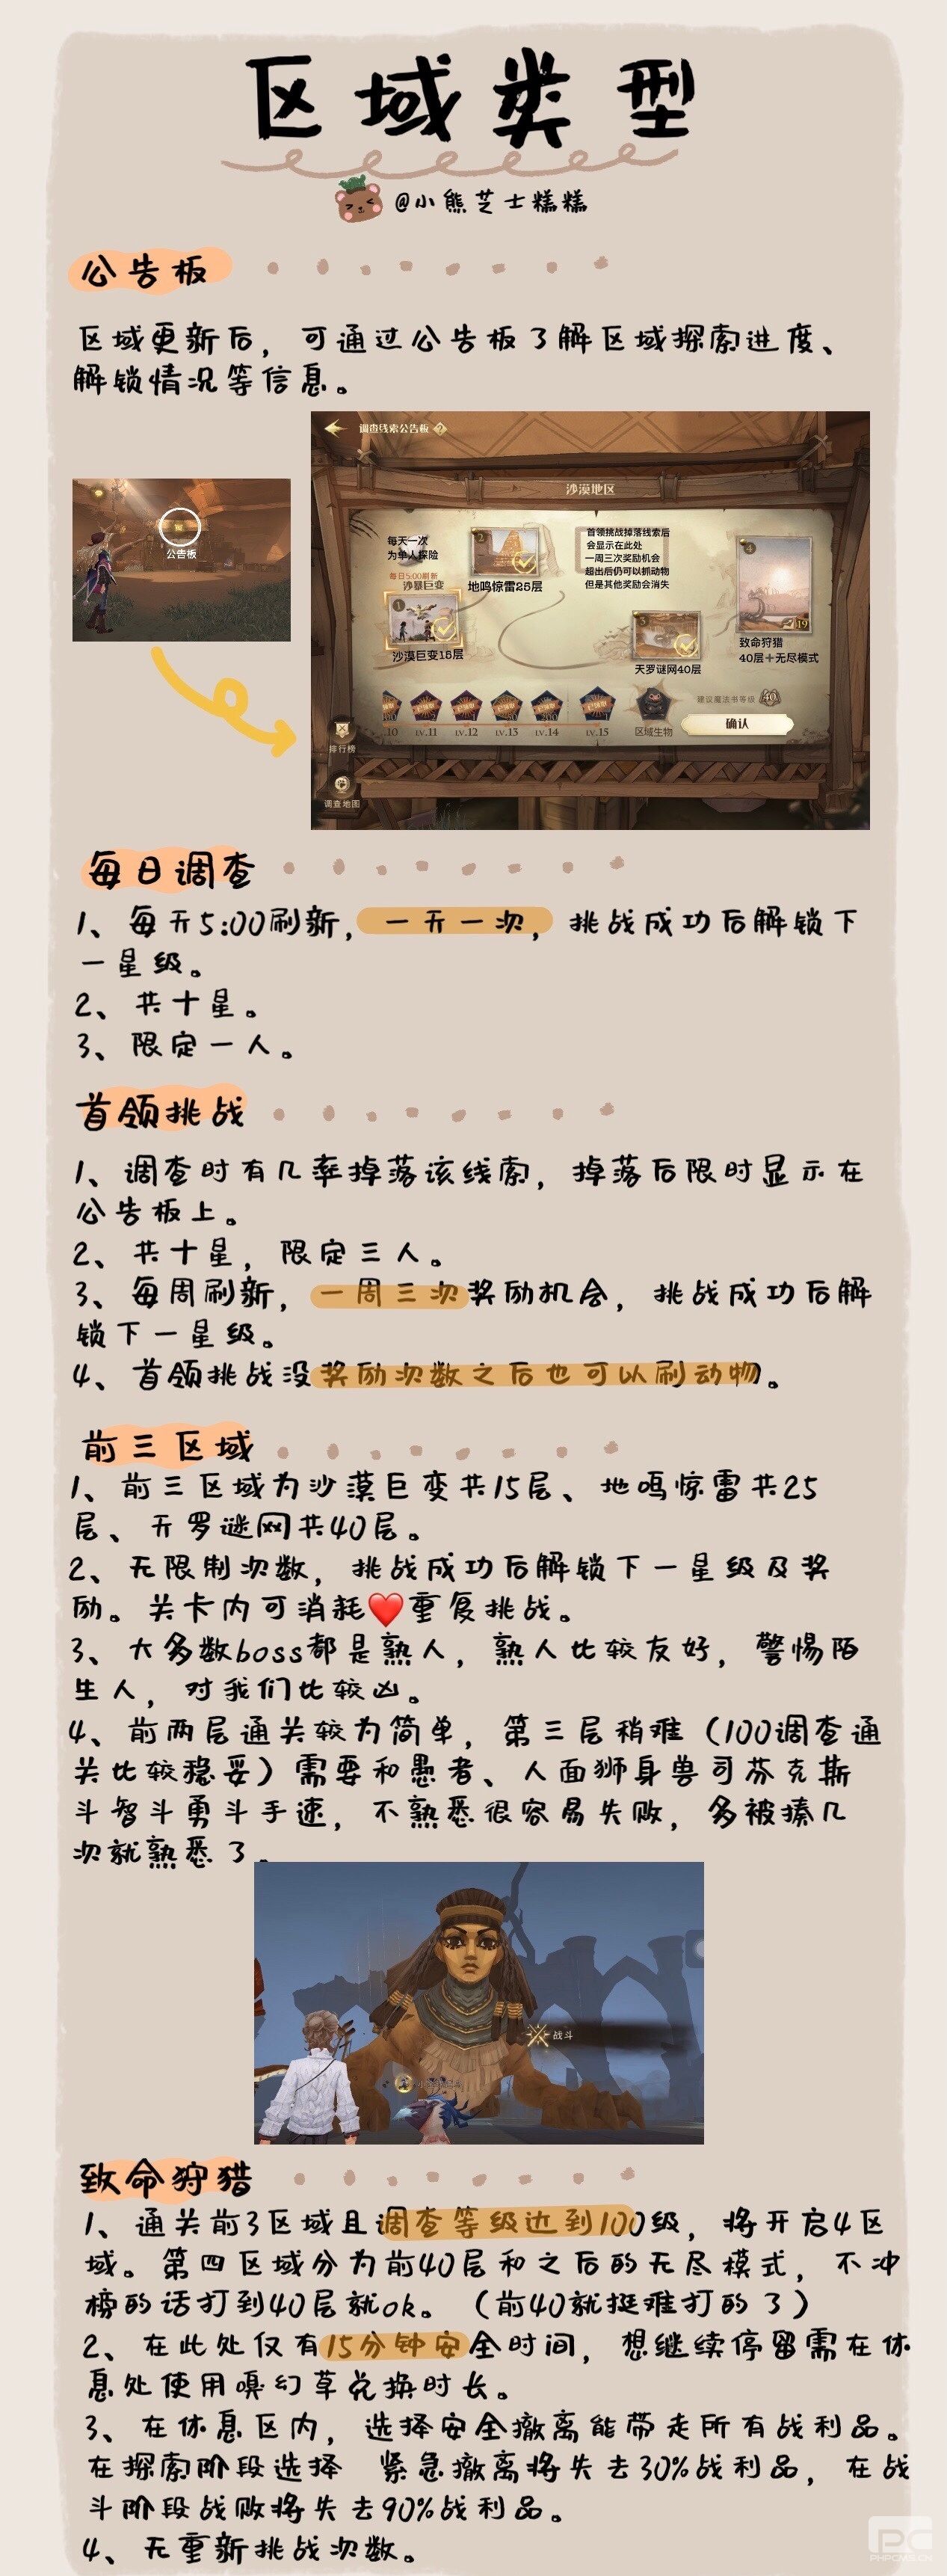 区域类型
@小熊芝士糕糕
公告板
区域更新后，可通过公告板了解区域探索进度、
解锁情况等信息。
公告板
调查线索公告板
沙漠地区
每天一次
为单人探险
每日5:00刷新
沙暴巨变
1
沙漠巨变15层
2
地鸣惊雷25层
首领挑战掉落线索后
会显示在此处
一周三次奖励机会
超出后仍可以抓动物
但是其他奖励会消失
3
天罗谜网40层
4
19
致命狩猎
40层＋无尽模式
.10
LV.11
LV.12
LV.13
LV.14
LV.15
区域生物
建议魔法书等级
40
确认
排行榜
调查地图
每日调查
1、每天5:00刷新，一天一次，挑战成功后解锁下
一星级。
2、共十星。
3、限定一人。
首领挑战
1、调查时有几率掉落该线索，掉落后限时显示在
公告板上。
2、共十星，限定三人。
3、每周刷新，一周三次奖励机会，挑战成功后解
锁下一星级。
4、首领挑战没奖励次数之后也可以刷动物。
前三区域
1、前三区域为沙漠巨变共15层、地鸣惊雷共25
层、天罗谜网共40层。
2、无限制次数，挑战成功后解锁下一星级及奖
励。关卡内可消耗❤️重复挑战。
3、大多数boss都是熟人，熟人比较友好，警惕陌
生人，对我们比较凶。
4、前两层通关较为简单，第三层稍难（100调查通
关比较稳妥）需要和愚者、人面狮身兽司芬克斯
斗智斗勇斗手速，不熟悉很容易失败，多被揍几
次就熟悉了。
战斗
致命狩猎
1、通关前3区域且调查等级达到100级，将开启4区
域。第四区域分为前40层和之后的无尽模式，不冲
榜的话打到40层就ok。（前40就挺难打的了）
2、在此处仅有15分钟安全时间，想继续停留需在休
息处使用嗅幻草兑换时长。
3、在休息区内，选择安全撤离能带走所有战利品。
在探索阶段选择 紧急撤离将失去30%战利品，在战
斗阶段战败将失去90%战利品。
4、无重新挑战次数。
PC
PHPCMS.CN